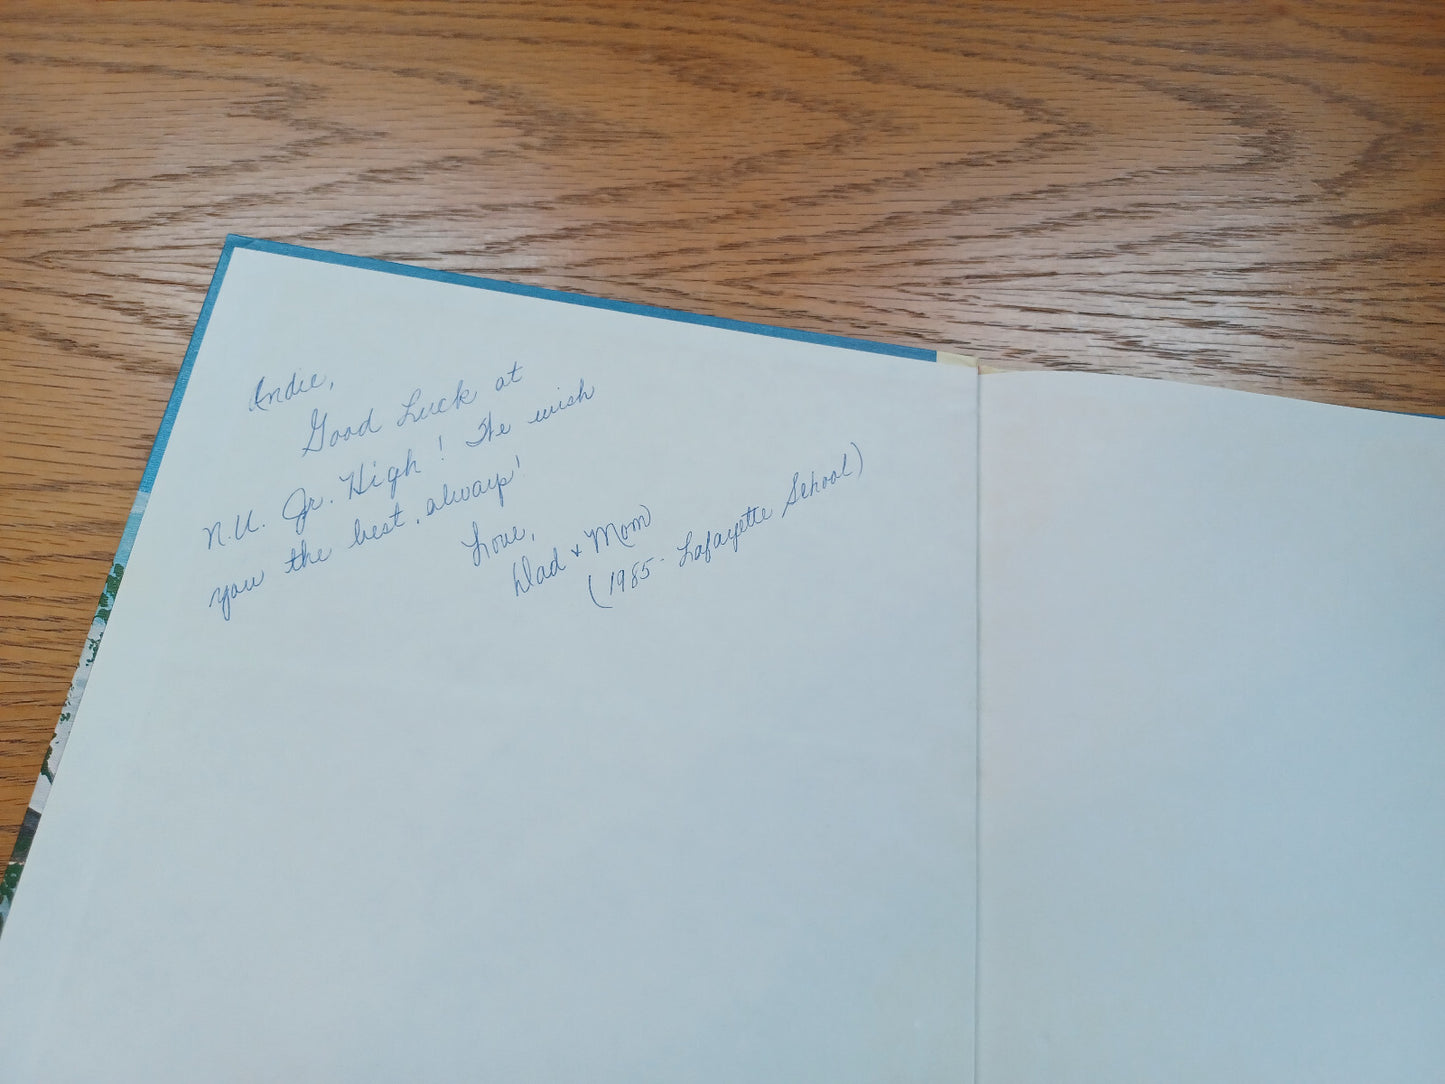 Andie,
Good Luck at
N.U. Jr. High! We wish
you the best, always!
Love,
Dad & Mom
(1985- Lafayette School)